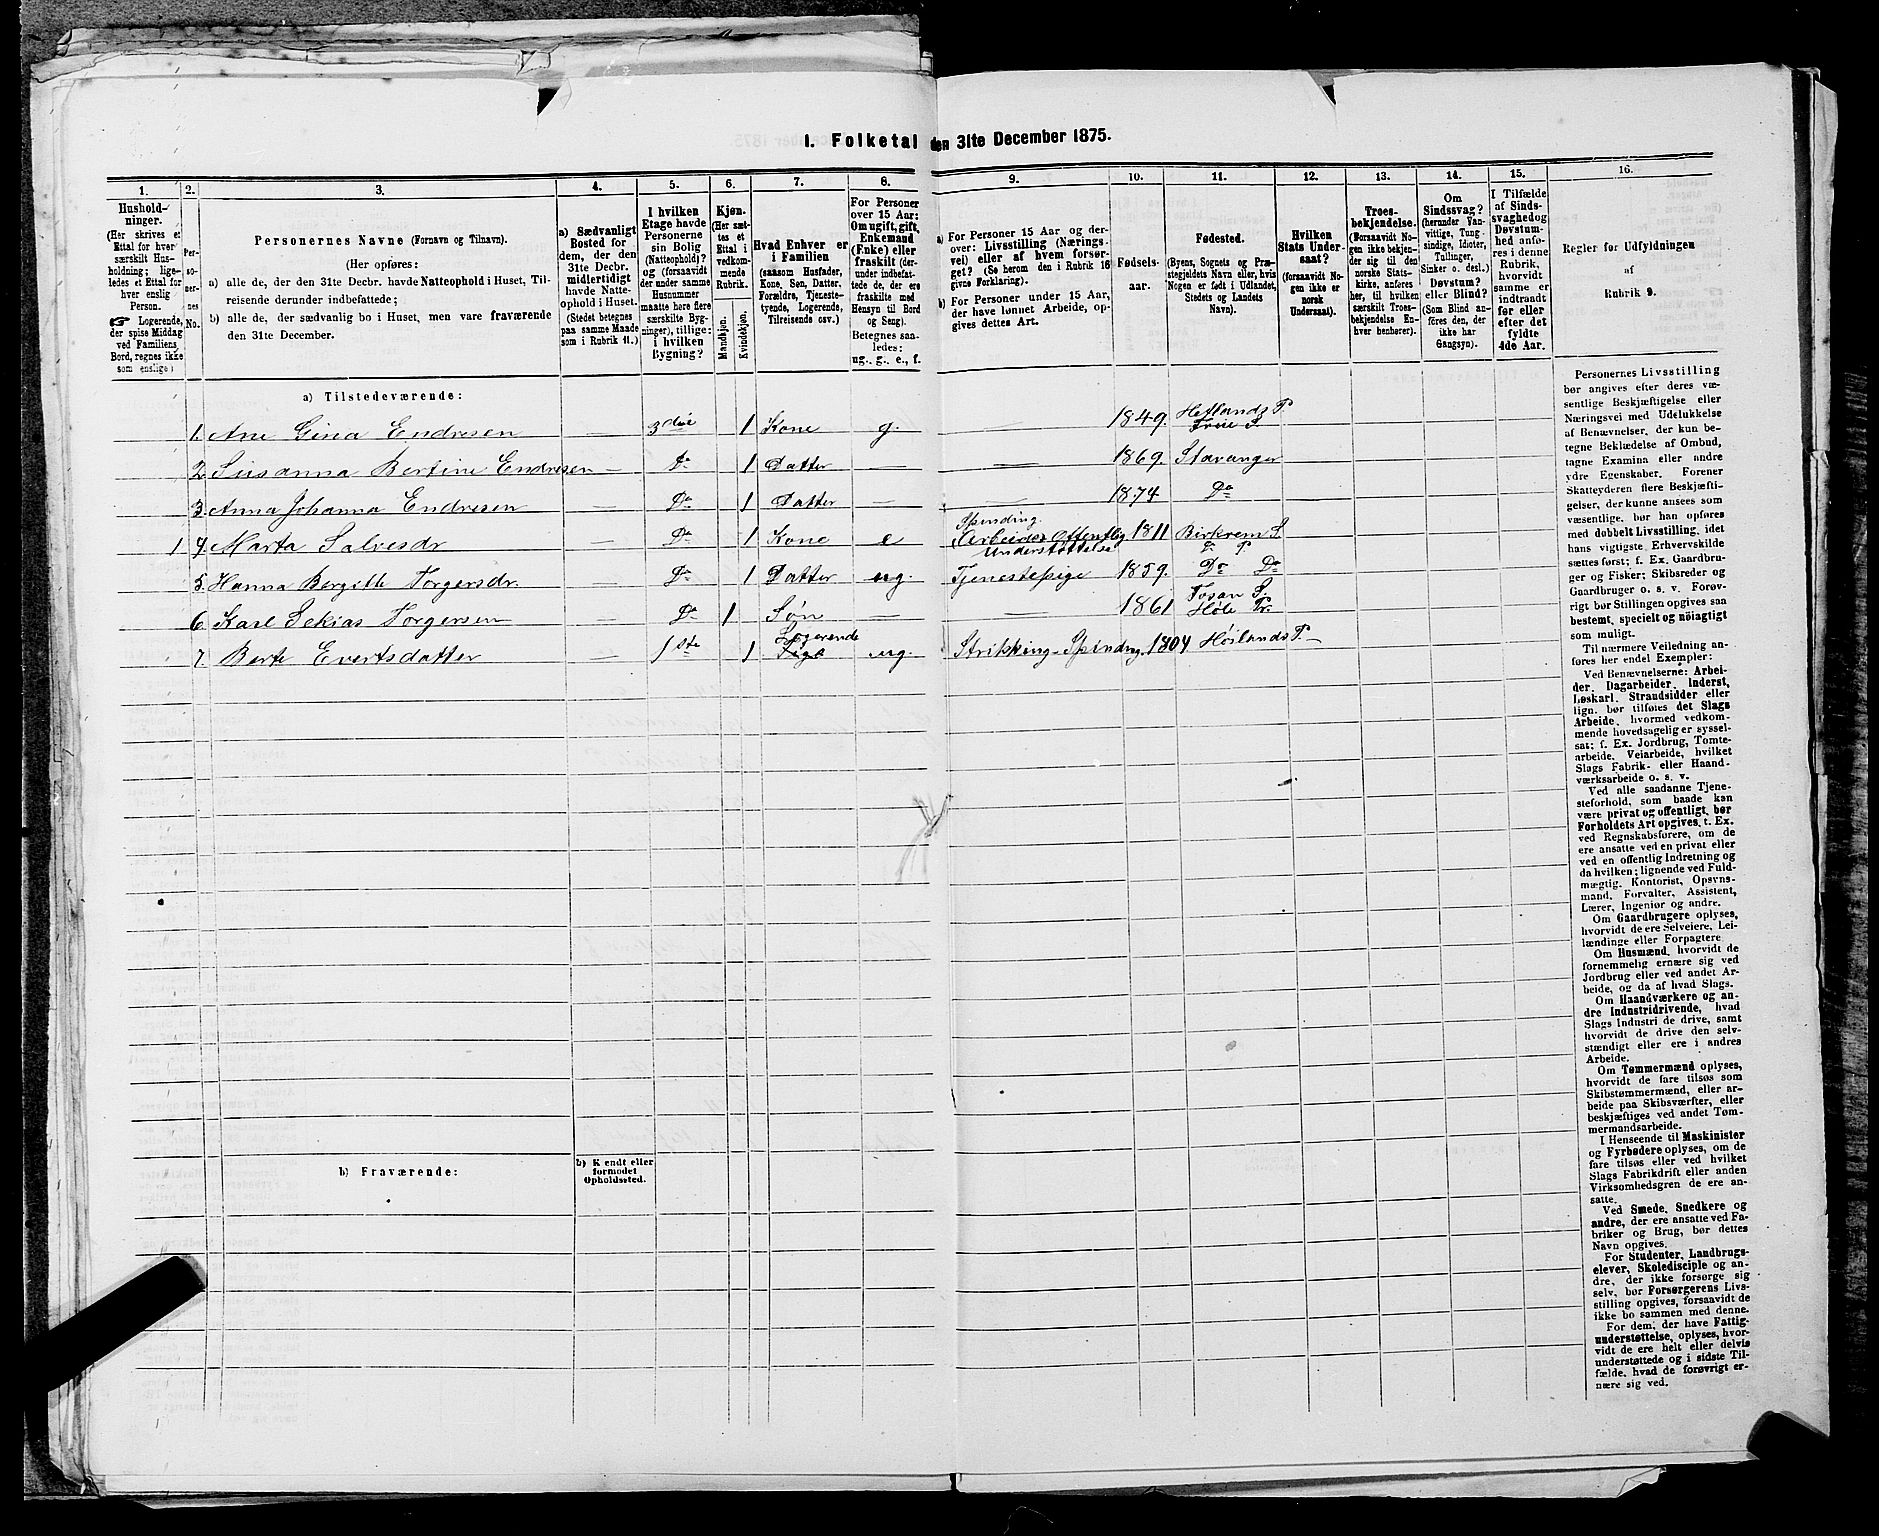 1. Folketal den 31te December 1875.
1. 2. 3. 4. 5. 6. 7. 8. 9. 10. 11. 12. 13. 14. 15. 16.
Hushold-
ninger.
(Her skrives et
Ettal for hver
særskilt Hus-
holdning; lige-
ledes et Ettal for
hver enslig
Person.
☞ Logerende,
der spise Middag
ved Familiens
Bord, regnes ikke
som enslige)
Per-
so-
ner-
nes
No.
Personernes Navne (Fornavn og Tilnavn).
(Her opføres:
a) alle de, der den 31te Decbr. havde Natteophold i Huset, Til-
reisende derunder indbefattede;
b) alle de, der sædvanlig bo i Huset, men vare fraværende
den 31te December.
a) Sædvanligt
Bosted for
dem, der den
31te Decbr.
midlertidigt
havde Natte-
ophold i Huset.
(Stedet betegnes
paa samme Maade
som i Rubrik 11.)
I hvilken
Etage havde
Personerne
sin Bolig
(Natteophold)?
og (forsaavidt
der under samme
Husnummer
maatte høre flere
særskilte Byg-
ninger), tillige:
i hvilken
Bygning?
Kjøn.
(Her sæt-
tes et
Ettal i
vedkom-
mende
Rubrik.
Mandkjøn.
Kvindekjøn.
Hvad Enhver er
i Familien
(saasom Husfader,
Kone, Søn, Datter,
Forældre, Tjeneste-
tyende, Logerende,
Tilreisende osv.)
For Personer
over 15 Aar:
Om ugift, gift,
Enkemand
(Enke) eller
fraskilt (der-
under indbefat-
tede de, der ere
fraskilte med
Hensyn til Bord
og Seng).
Betegnes saa-
ledes:
ug., g., e., f.
a) For Personer 15 Aar og der-
over: Livsstilling (Nærings-
vei) eller af hvem forsør-
get? (Se herom den i Rubrik 16
givne Forklaring).
b) For Personer under 15 Aar,
der have lønnet Arbeide, op-
gives dettes Art.
Fødsels-
aar.
Fødested.
(Byens, Sognets og Præ-
stegjeldets Navn eller, hvis
Nogen er født i Udlandet,
Stedets og Landets
Navn).
Hvilken
Stats Under-
saat?
(forsaavidt No-
gen ikke er
norsk
Undersaat).
Troes-
bekjendelse.
(Forsaavidt No-
gen ikke bekjen-
der sig til den
norske Stats-
kirke, anføres
her, til hvilken
særskilt Troes-
bekjendelse En-
hver henhører).
Om
Sindssvag?
(herunder Van-
vittige, Tung-
sindige, Idioter,
Tullinger,
Sinker o. desl.)
Døvstum?
eller Blind?
(Som Blind an-
føres den, der
ikke har
Gangsyn).
I Tilfælde
af Sinds-
svaghed og
Døvstum-
hed anfø-
res i denne
Rubrik,
hvorvidt
samme er
indtraadt
før eller
efter det
fyldte
4de Aar.
Regler for Udfyldningen
af
Rubrik 9.
a) Tilstedeværende:
1. Ane Gina Endresen — 3die 1 Kone g. — 1849. Hetlands P. Frue S
2. Susanna Bertine Endresen — Do 1 Datter — — 1869. Stavanger
3. Anna Johanna Endresen — Do 1 Datter — — 1874 Do
1 4. Marta Salvesdr — Do 1 Kone e Spinding. Arbeider Offentlig Understøttelse 1811 Birkrem S. Do P.
5. Hanna Bergitte Torgersdr. — Do 1 Datter ug. Tjenestepige 1859. Do Do
6. Karl Sekias Torgersen — Do 1 Søn — — 1861 Høle Pr.
7. Berte Evertsdatter — 1ste 1 Logerende ug. Strikking-Spindng. 1804 Høilands P. —
b) Fraværende:
b) Kjendt eller
formodet
Opholdssted.
Personernes Livsstilling
bør angives efter deres væ-
sentlige Beskjæftigelse eller
Næringsvei med Udelukkelse
af Benævnelser, der kun be-
tegne Beklædelse af Ombud,
tagne Examina eller andre
ydre Egenskaber. Forener
Skatteyderen flere Beskjæfti-
gelser, der kunne ansees som
væsentlige, bør han opføres
med dobbelt Livsstilling, idet
hans vigtigste Erhvervskilde
sættes først; f. Ex. Gaardbru-
ger og Fisker; Skibsreder og
Gaardbruger o. s. v. Forøv-
rigt bør Stillingen opgives saa
bestemt, specielt og nøiagtigt
som muligt.
Til nærmere Veiledning an-
føres her endel Exempler:
Ved Benævnelserne: Arbei-
der, Dagarbeider, Inderst,
Løskarl, Strandsidder eller
lign. bør tilføies det Slags
Arbeide, hvormed vedkom-
mende hovedsagelig er syssel-
sat; f. Ex. Jordbrug, Tomte-
arbeide, Veiarbeide, hvilket
Slags Fabrik- eller Haand-
værksarbeide o. s. v.
Ved alle saadanne Tjene-
steforhold, som baade kan
være privat og offentligt, bør
Forholdets Art opgives, t. Ex.
ved Regnskabsførere, om de
ere ansatte ved en privat eller
ved en offentlig Indretning og
da hvilken; lignende ved Fuld-
mægtig, Kontorist, Opsyns-
mand, Forvalter, Assistent,
Lærer, Ingeniør og andre.
Om Gaardbrugere oplyses,
hvorvidt de ere Selveiere, Lei-
lændinge eller Forpagtere.
Om Husmænd, hvorvidt de
fornemmelig ernære sig ved
Jordbrug eller ved andet Ar-
beide, og da af hvad Slags.
Om Haandværkere og an-
dre Industridrivende, hvad
Slags Industri de drive, samt
hvorvidt de drive den selv-
stændigt eller ere i andres
Arbeide.
Om Tømmermænd oplyses,
hvorvidt de fare tilsøs som
Skibstømmermænd, eller ar-
beide paa Skibsværfter, eller
beskjæftiges ved andet Tøm-
mermandsarbeide.
I Henseende til Maskinister
og Fyrbødere oplyses, om de
fare tilsøs eller ved hvilket
Slags Fabrikdrift eller anden
Virksomhedsgren de ere an-
satte.
Ved Smede, Snedkere og
andre, der ere ansatte ved Fa-
briker og Brug, bør dettes
Navn opgives.
For Studenter, Landbrugs-
elever, Skoledisciple og an-
dre, der ikke forsørge sig
selv, bør Forsørgerens Livs-
stilling opgives, forsaavidt de
ikke bo sammen med denne.
For dem, der have Fattig-
understøttelse, oplyses, hvor-
vidt de ere helt eller delvis
understøttede og i sidste Til-
fælde, hvad de forøvrigt er-
nære sig ved.